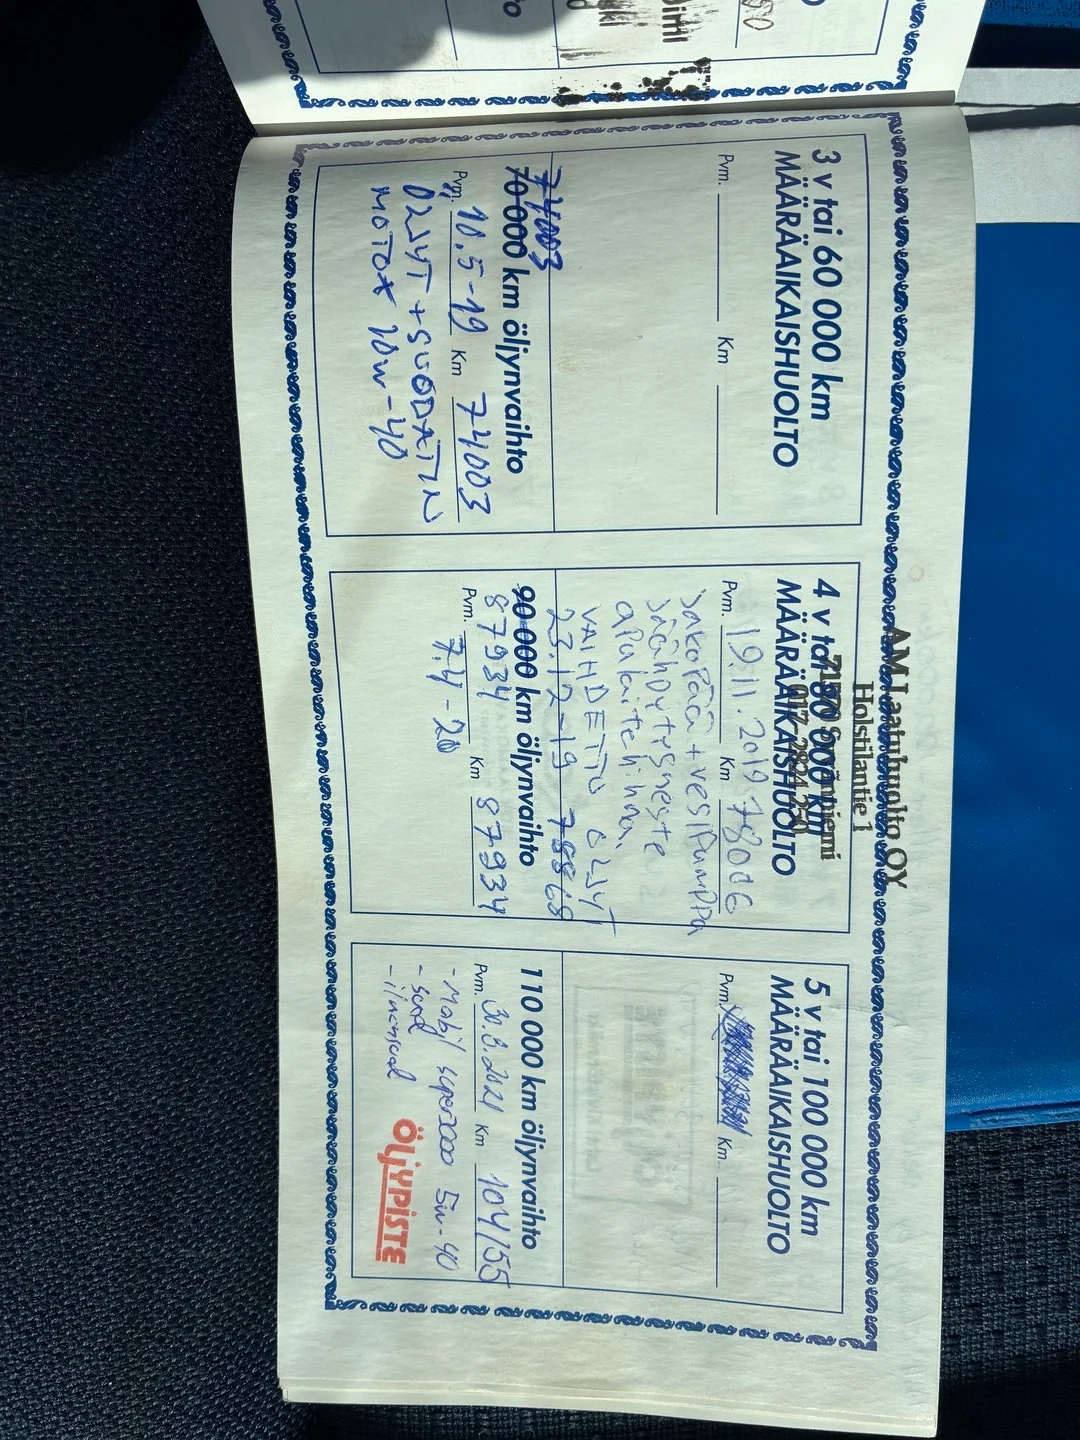 3 v tai 60 000 km
MÄÄRÄAIKAISHUOLTO
Pvm. Km
74003
70 000 km öljynvaihto
Pvm. 10.5-19 Km 74003
ÖLJYT + SUODATIN
MOTOX 10W-40
AM Laatuhuolto OY
Holstilantie 1
4 v tai 80 000 km
MÄÄRÄAIKAISHUOLTO
Pvm. 19.11.2019 Km 78006
Jakopää + vesipumppu
Jäähdytysneste
apulaitehihna.
VAIHDETTU ÖLJYT
23.12-19 78868
90 000 km öljynvaihto
87934
Pvm. 7.4-20 Km 87934
5 v tai 100 000 km
MÄÄRÄAIKAISHUOLTO
Pvm. Km
110 000 km öljynvaihto
Pvm. 30.8.2021 Km 104155
- Mobil super2000 5w-40
- suod
- ilmansuod
ÖLJYPISTE